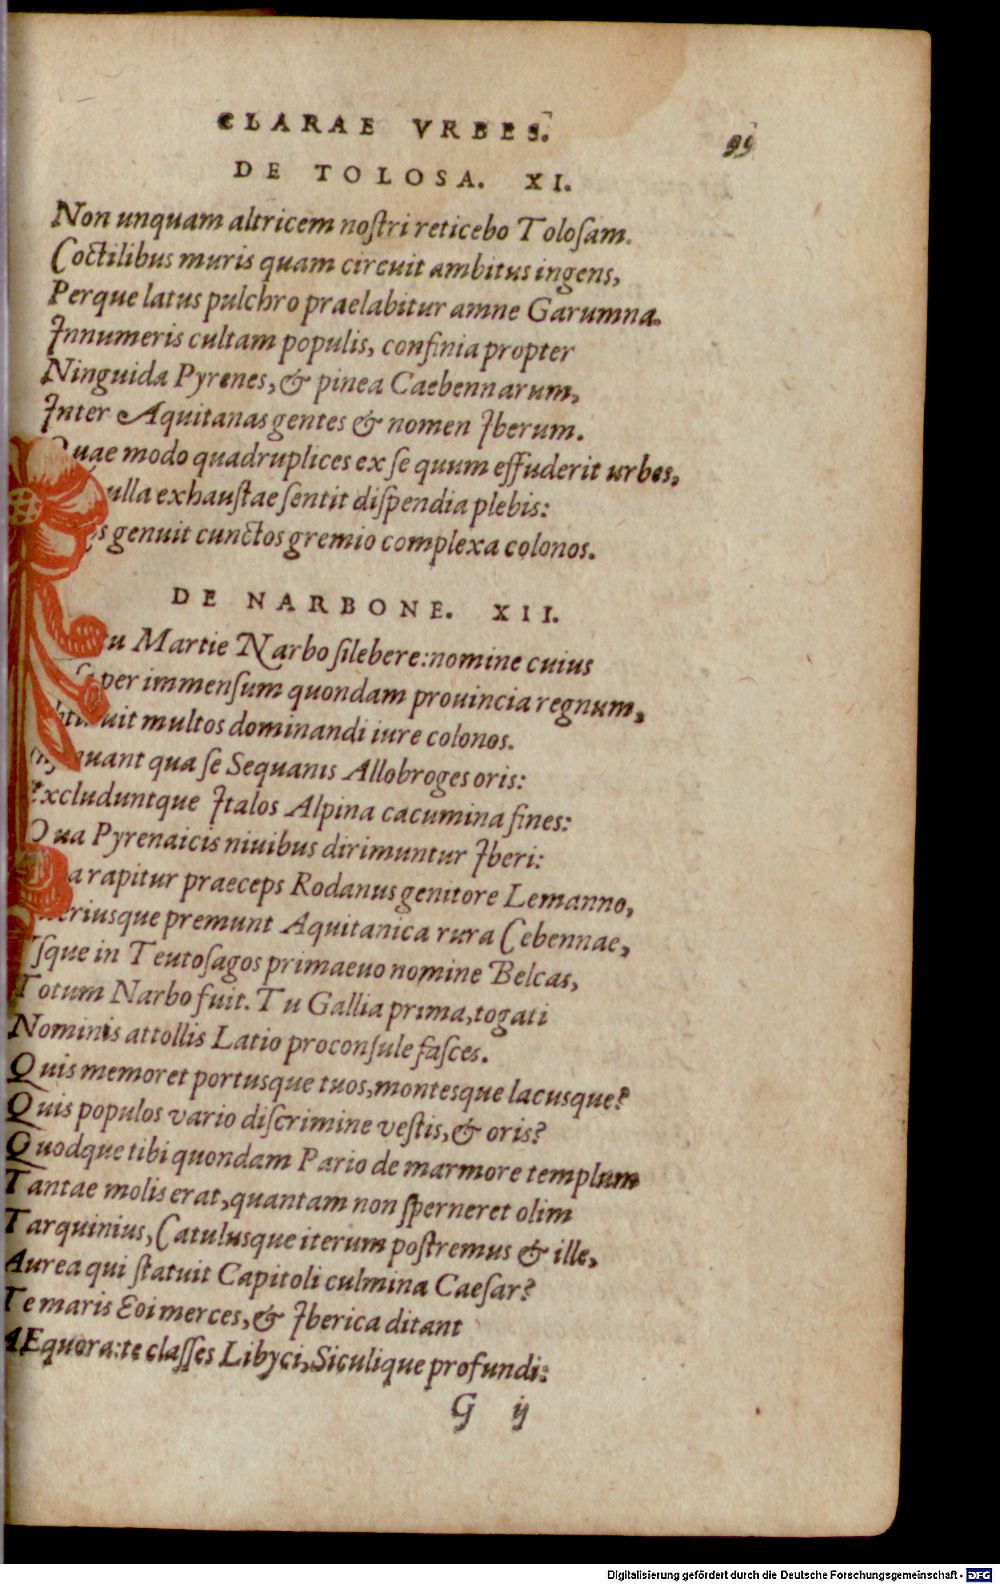 CLARAE VRBES.
99
DE TOLOSA. XI.
Non unquam altricem nostri reticebo Tolosam.
Coctilibus muris quam circuit ambitus ingens,
Perque latus pulchro praelabitur amne Garumna.
Innumeris cultam populis, confinia propter
Ninguida Pyrenes, & pinea Caebennarum,
Inter Aquitanas gentes & nomen Iberum.
Quae modo quadruplices ex se quum effuderit urbes,
ulla exhaustae sentit dispendia plebis:
s genuit cunctos gremio complexa colonos.
DE NARBONE. XII.
u Martie Narbo silebere: nomine cuius
per immensum quondam prouincia regnum,
uit multos dominandi iure colonos.
uant qua se Sequanis Allobroges oris:
Excluduntque Italos Alpina cacumina fines:
Qua Pyrenaicis niuibus dirimuntur Iberi:
a rapitur praeceps Rodanus genitore Lemanno,
eriusque premunt Aquitanica rura Cebennae,
Usque in Teutosagos primaeuo nomine Belcas,
Totum Narbo fuit. Tu Gallia prima, togati
Nominis attollis Latio proconsule fasces.
Quis memoret portusque tuos, montesque lacusque?
Quis populos vario discrimine vestis, & oris?
Quodque tibi quondam Pario de marmore templum
Tantae molis erat, quantam non sperneret olim
Tarquinius, Catulusque iterum postremus & ille,
Aurea qui statuit Capitoli culmina Caesar?
Te maris Eoi merces, & Iberica ditant
AEquora: te classes Libyci, Siculique profundi:
G ij
Digitalisierung gefördert durch die Deutsche Forschungsgemeinschaft - DFG